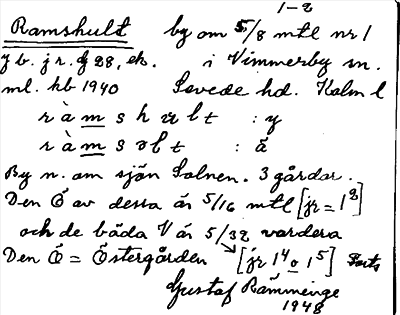 1-2
Ramshult by om 5/8 mtl nr 1
jb. jr. f 28, ek. i Vimmerby sn.
ml. hb 1940 Sevede hd. Kalm l
r à m s h u l t : y
r à m s o l t : å
By n. om sjön Solnen. 3 gårdar.
Den Ö av dessa är 5/16 mtl [jr = 1²]
och de båda V är 5/32 vardera
Den Ö = Östergården [jr 1⁴ o 1⁵] Forts
Gustaf Rämninge
1948